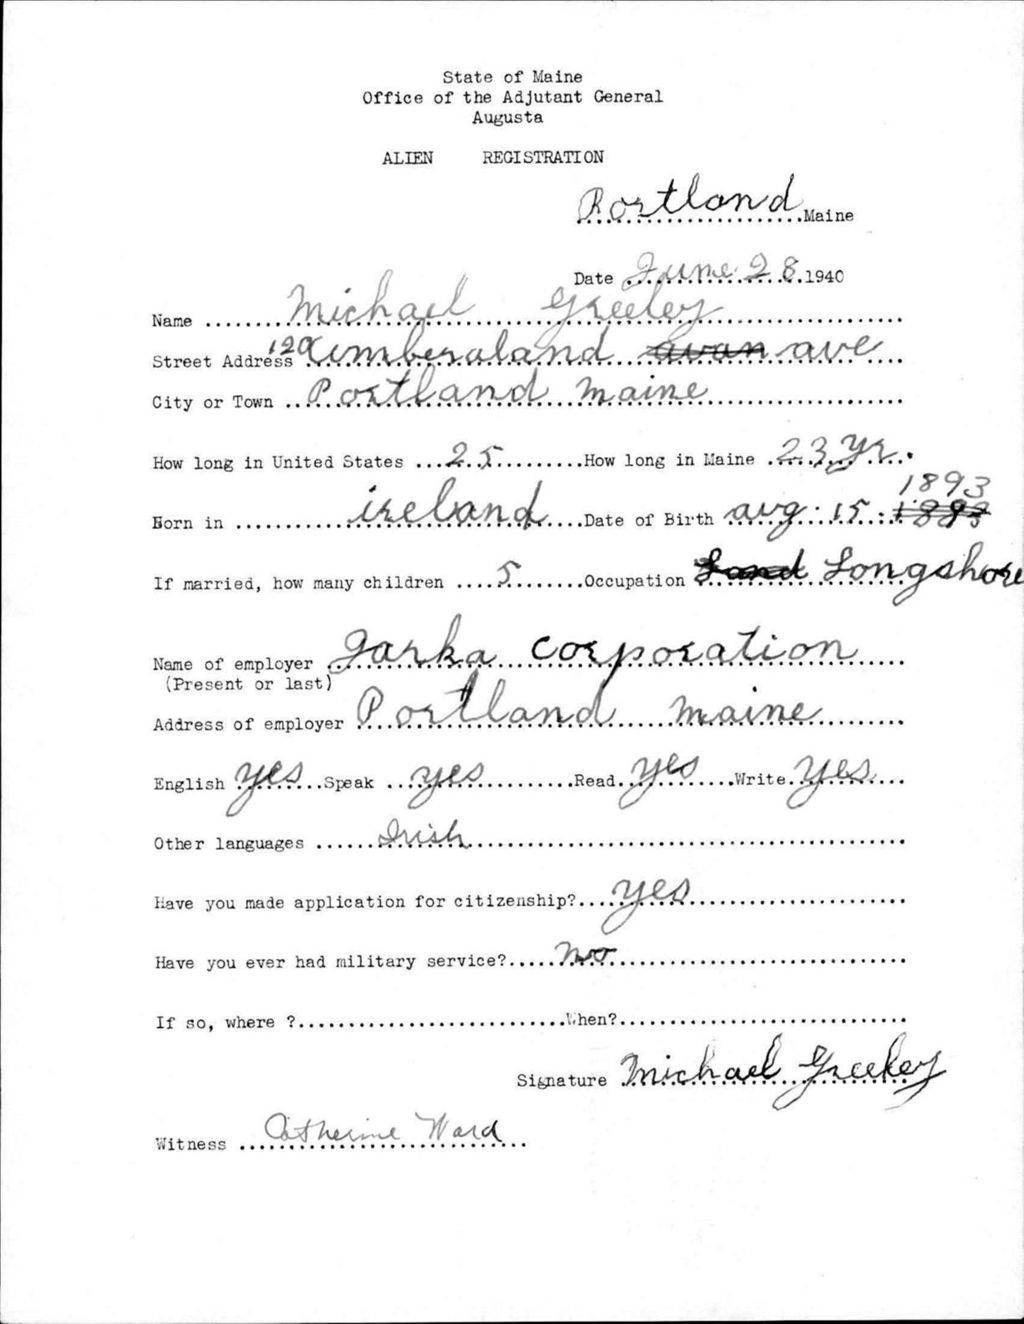 State of Maine
Office of the Adjutant General
Augusta
ALIEN REGISTRATION
Portland Maine
Date June 28 1940
Name Michael Greeley
Street Address 120 Cumberaland ave
City or Town Portland Maine
How long in United States 25 How long in Maine 23 yr.
1893
Born in ireland Date of Birth aug 15
If married, how many children 5 Occupation Longshore
Name of employer Jarka corporation
(Present or last)
Address of employer Portland maine
English yes Speak yes Read yes Write yes
Other languages Irish
Have you made application for citizenship? yes
Have you ever had military service? no
If so, where ? When?
Signature Michael Greeley
Witness Catherine Ward